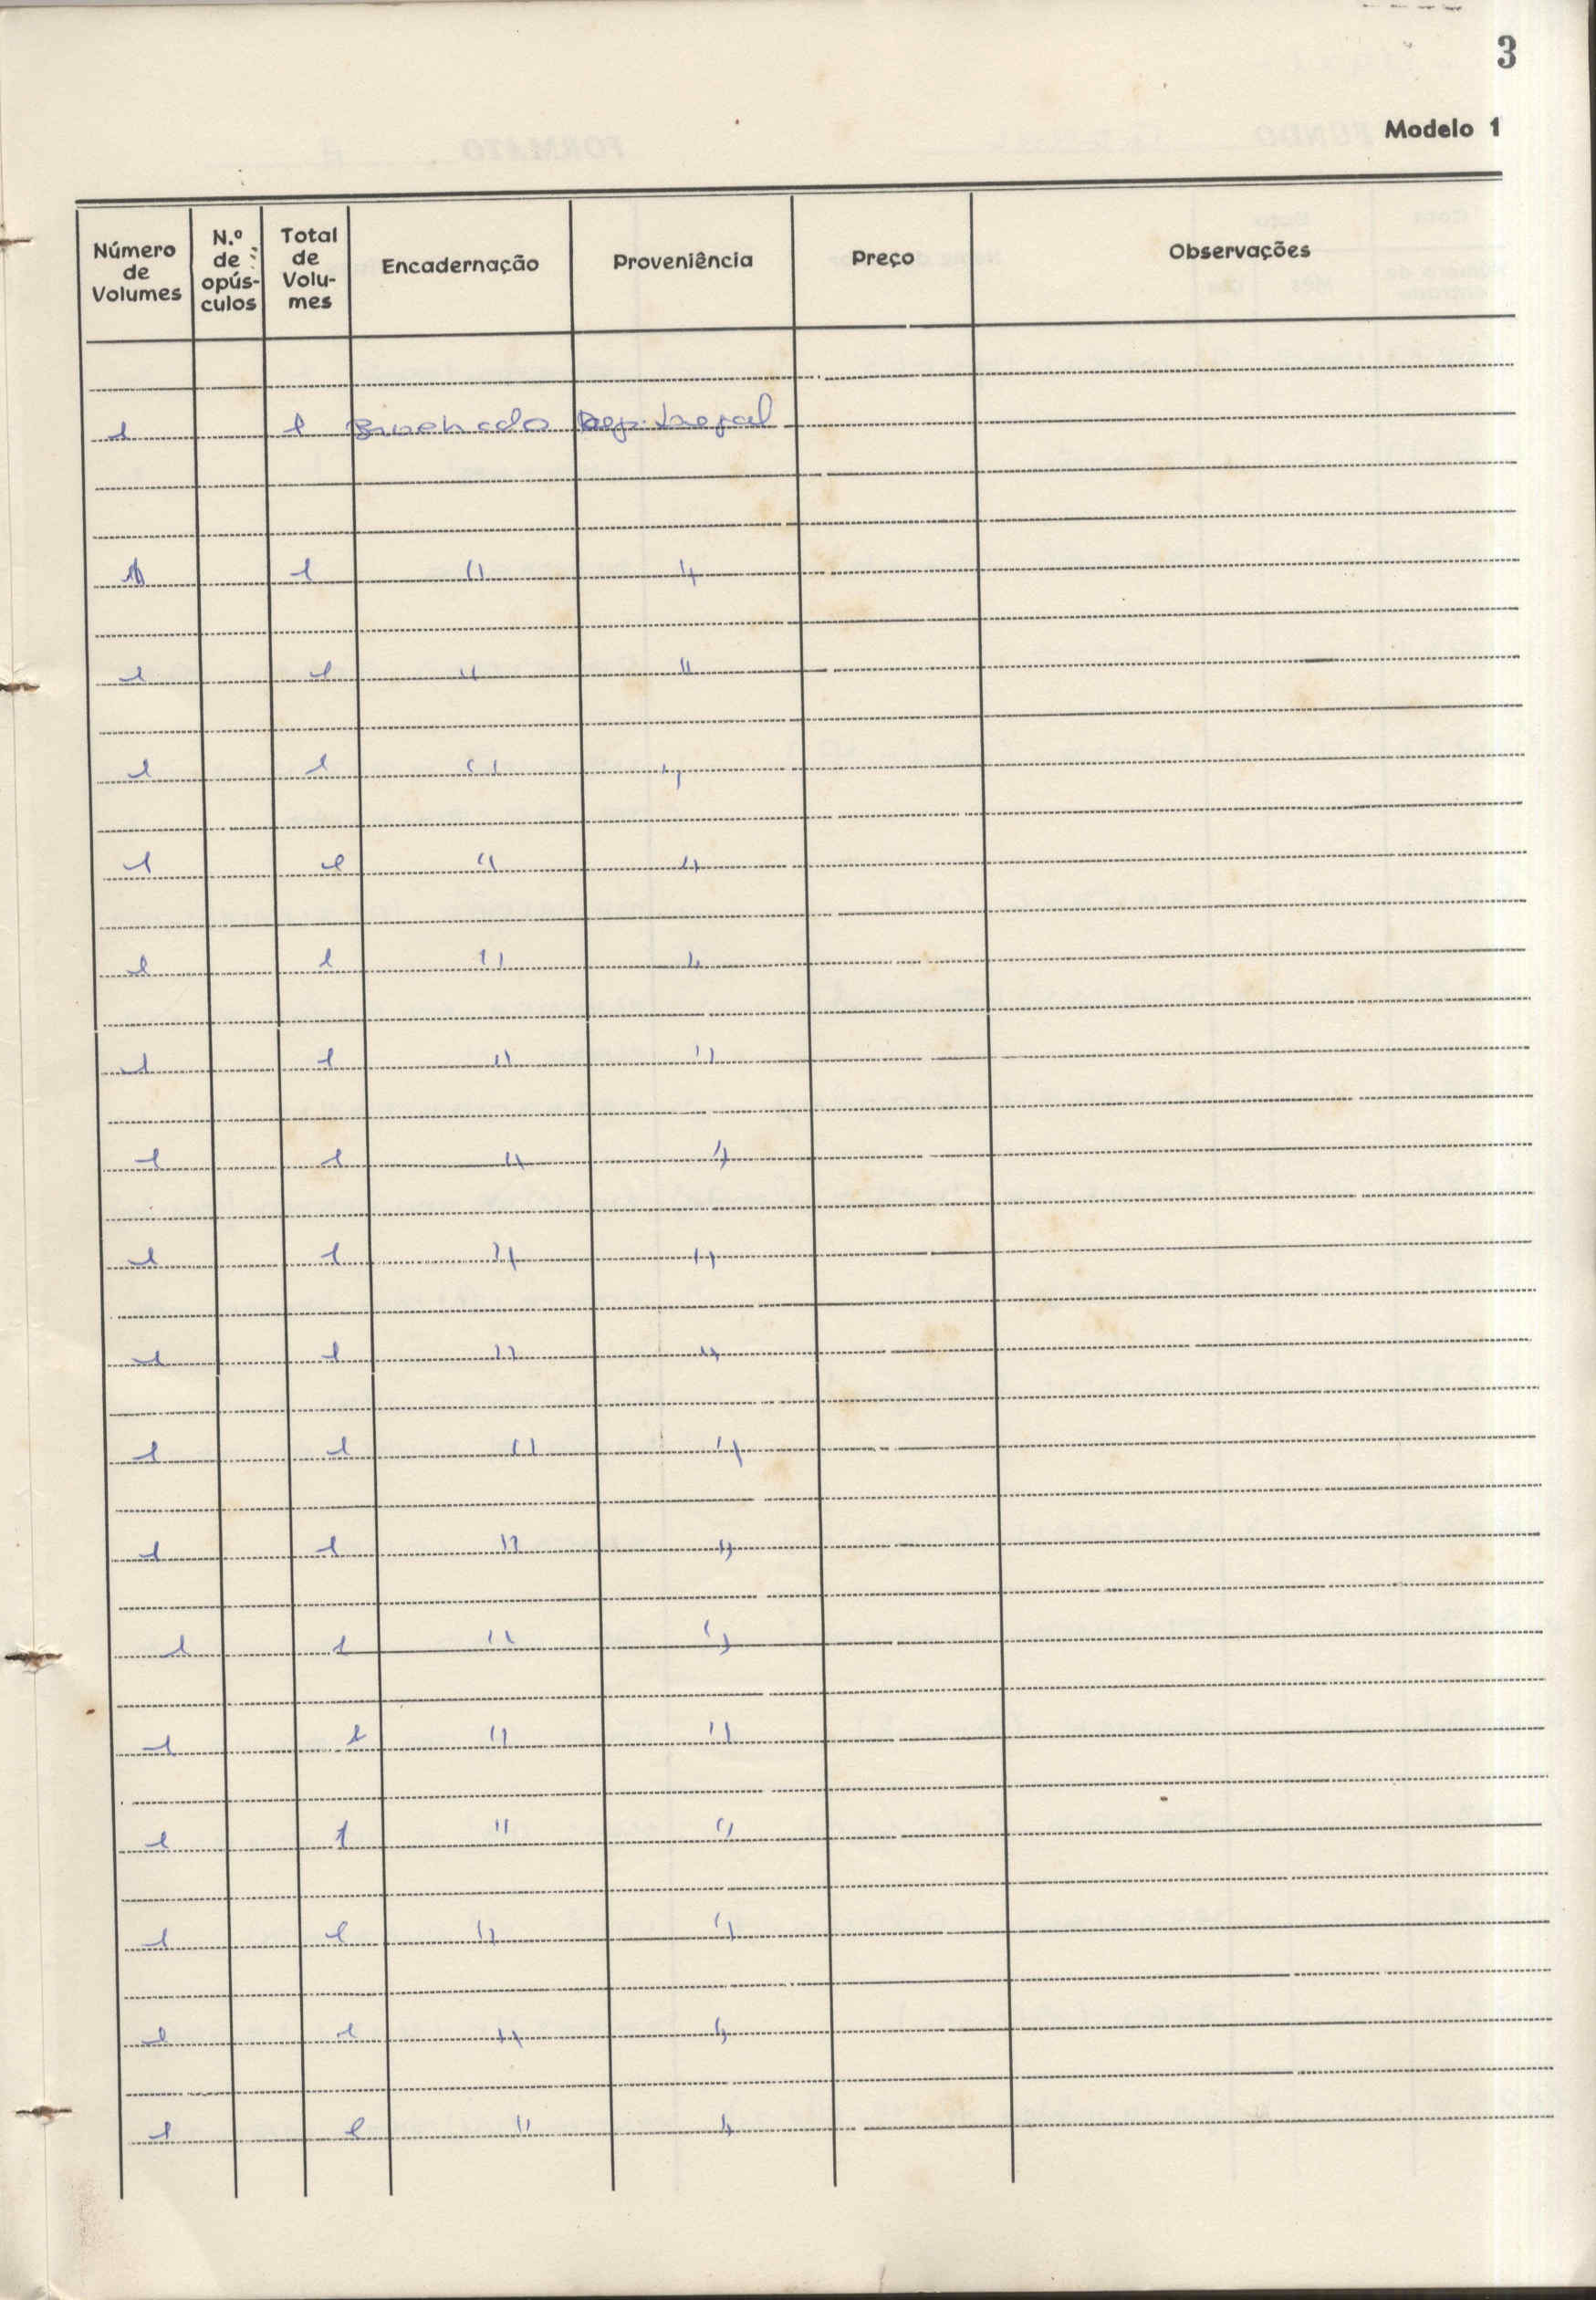 3
Modelo 1
Número de Volumes | N.º de opús-culos | Total de Volu-mes | Encadernação | Proveniência | Preço | Observações
1 | | 1 | Brochado | Dep. Legal
1 | | 1 | " | "
1 | | 1 | " | "
1 | | 1 | " | "
1 | | 1 | " | "
1 | | 1 | " | "
1 | | 1 | " | "
1 | | 1 | " | "
1 | | 1 | " | "
1 | | 1 | " | "
1 | | 1 | " | "
1 | | 1 | " | "
1 | | 1 | " | "
1 | | 1 | " | "
1 | | 1 | " | "
1 | | 1 | " | "
1 | | 1 | " | "
1 | | 1 | " | "